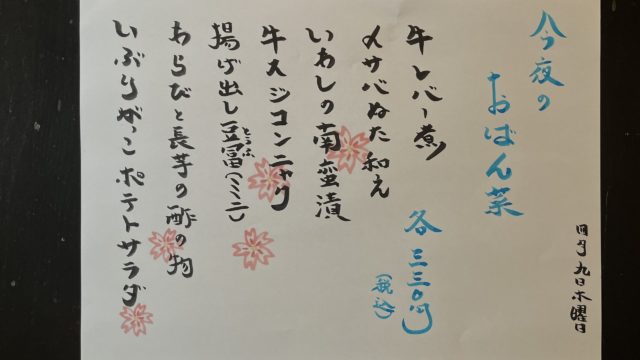 四月九日木曜日
今夜の
おばん菜
各三三〇円
(税込)
牛レバー煮
〆サバぬた和え
いわしの南蛮漬
牛スジコンニャク
揚げ出し豆冨(ミニ)
とうふ
わらびと長芋の酢の物
いぶりがっこポテトサラダ